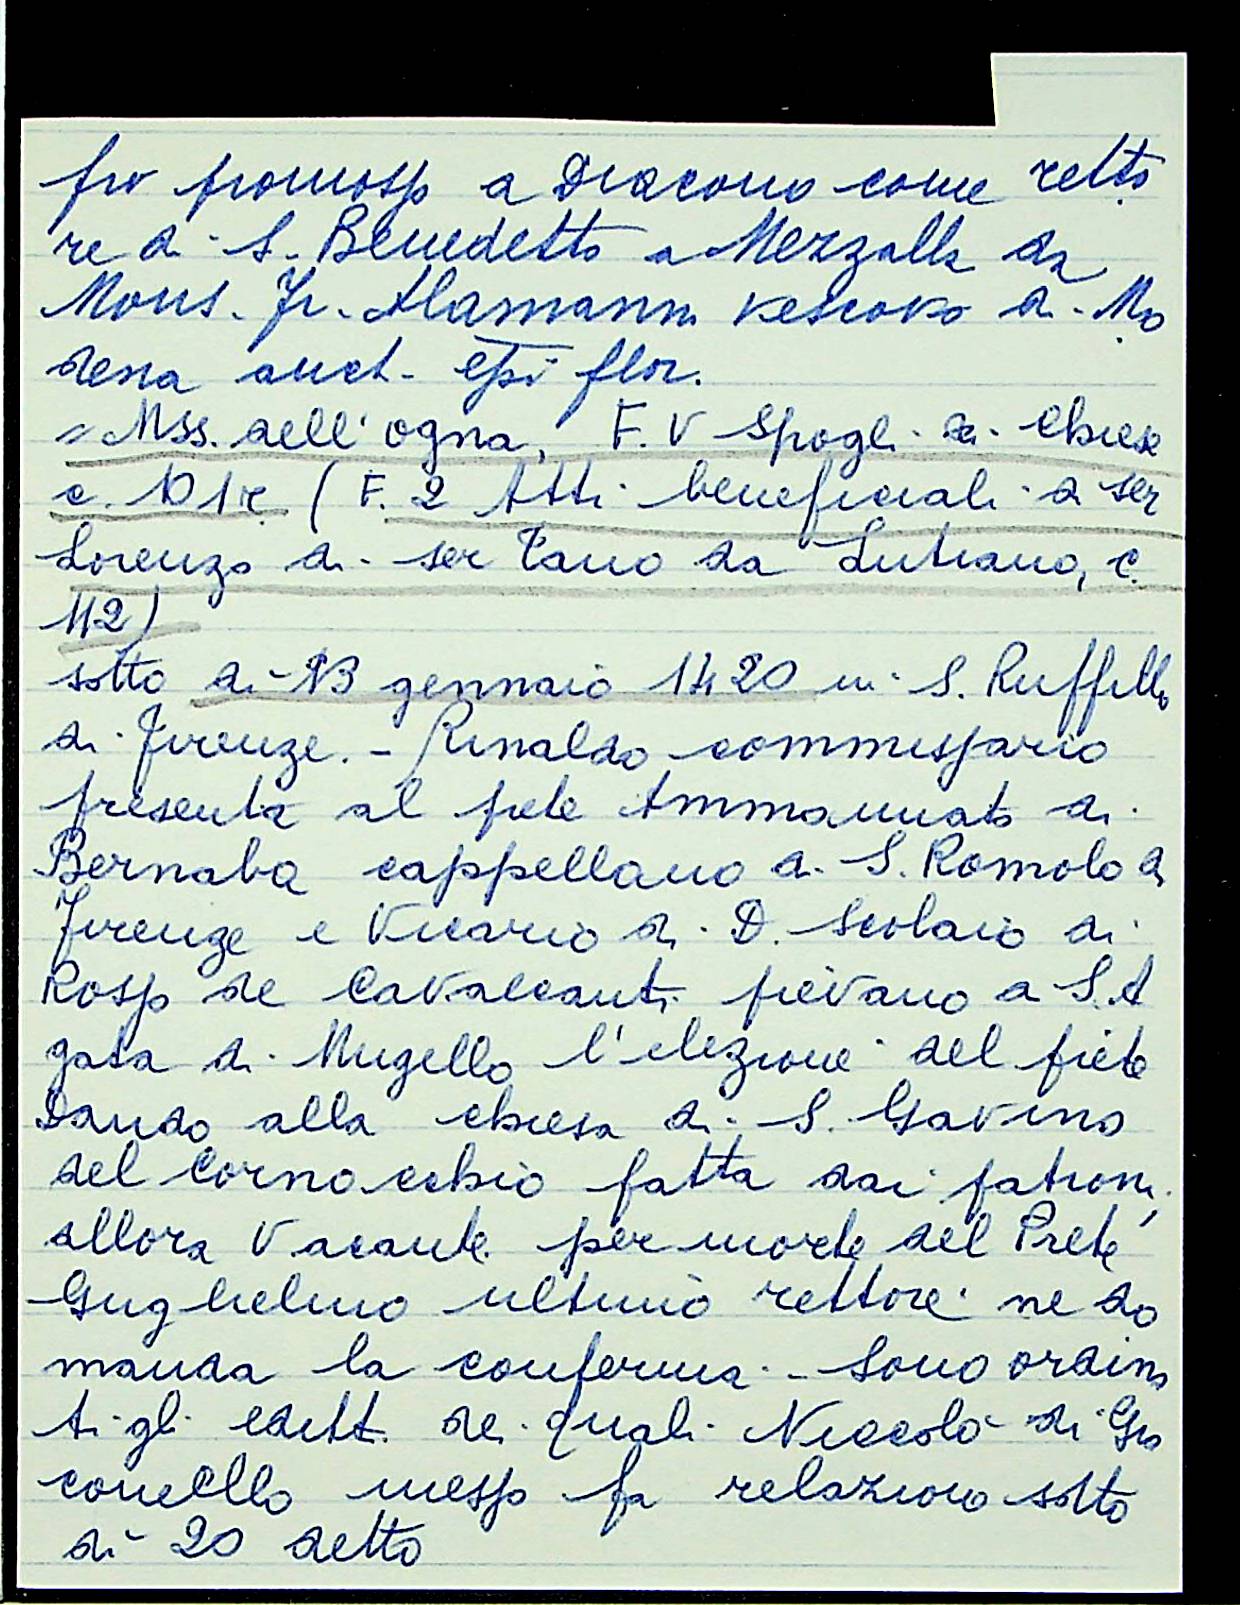 fu promosso a Diacono come retto
re di S. Benedetto a Mezzalla da
Mons. Fr. Alamanni vescovo di Mo
dena auct. epi flor.
= Mss. dell'ogna, F. V Spogli di Chiese
c. 101r. (F. 2 Atti beneficiali di ser
Lorenzo di ser Tano da Lutiano, c.
112)
sotto dì 13 gennaio 1420 in S. Ruffillo
di Firenze. - Rinaldo commissario
presenta al prete Ammannato di
Bernaba cappellano di S. Romolo di
Firenze e Vicario di D. Scolaio di
Rosso de Cavalcanti pievano a S. A
gata di Mugello l'elezione del prete
Dando alla chiesa di S. Gavino
del Cornocchio fatta dai patroni,
allora Vacante per morte del Prete
Guglielmo ultimo rettore ne do
manda la conferma - Sono ordina
ti gli editti dei quali Niccolò di Gia
conello messo fa relazione sotto
dì 20 detto